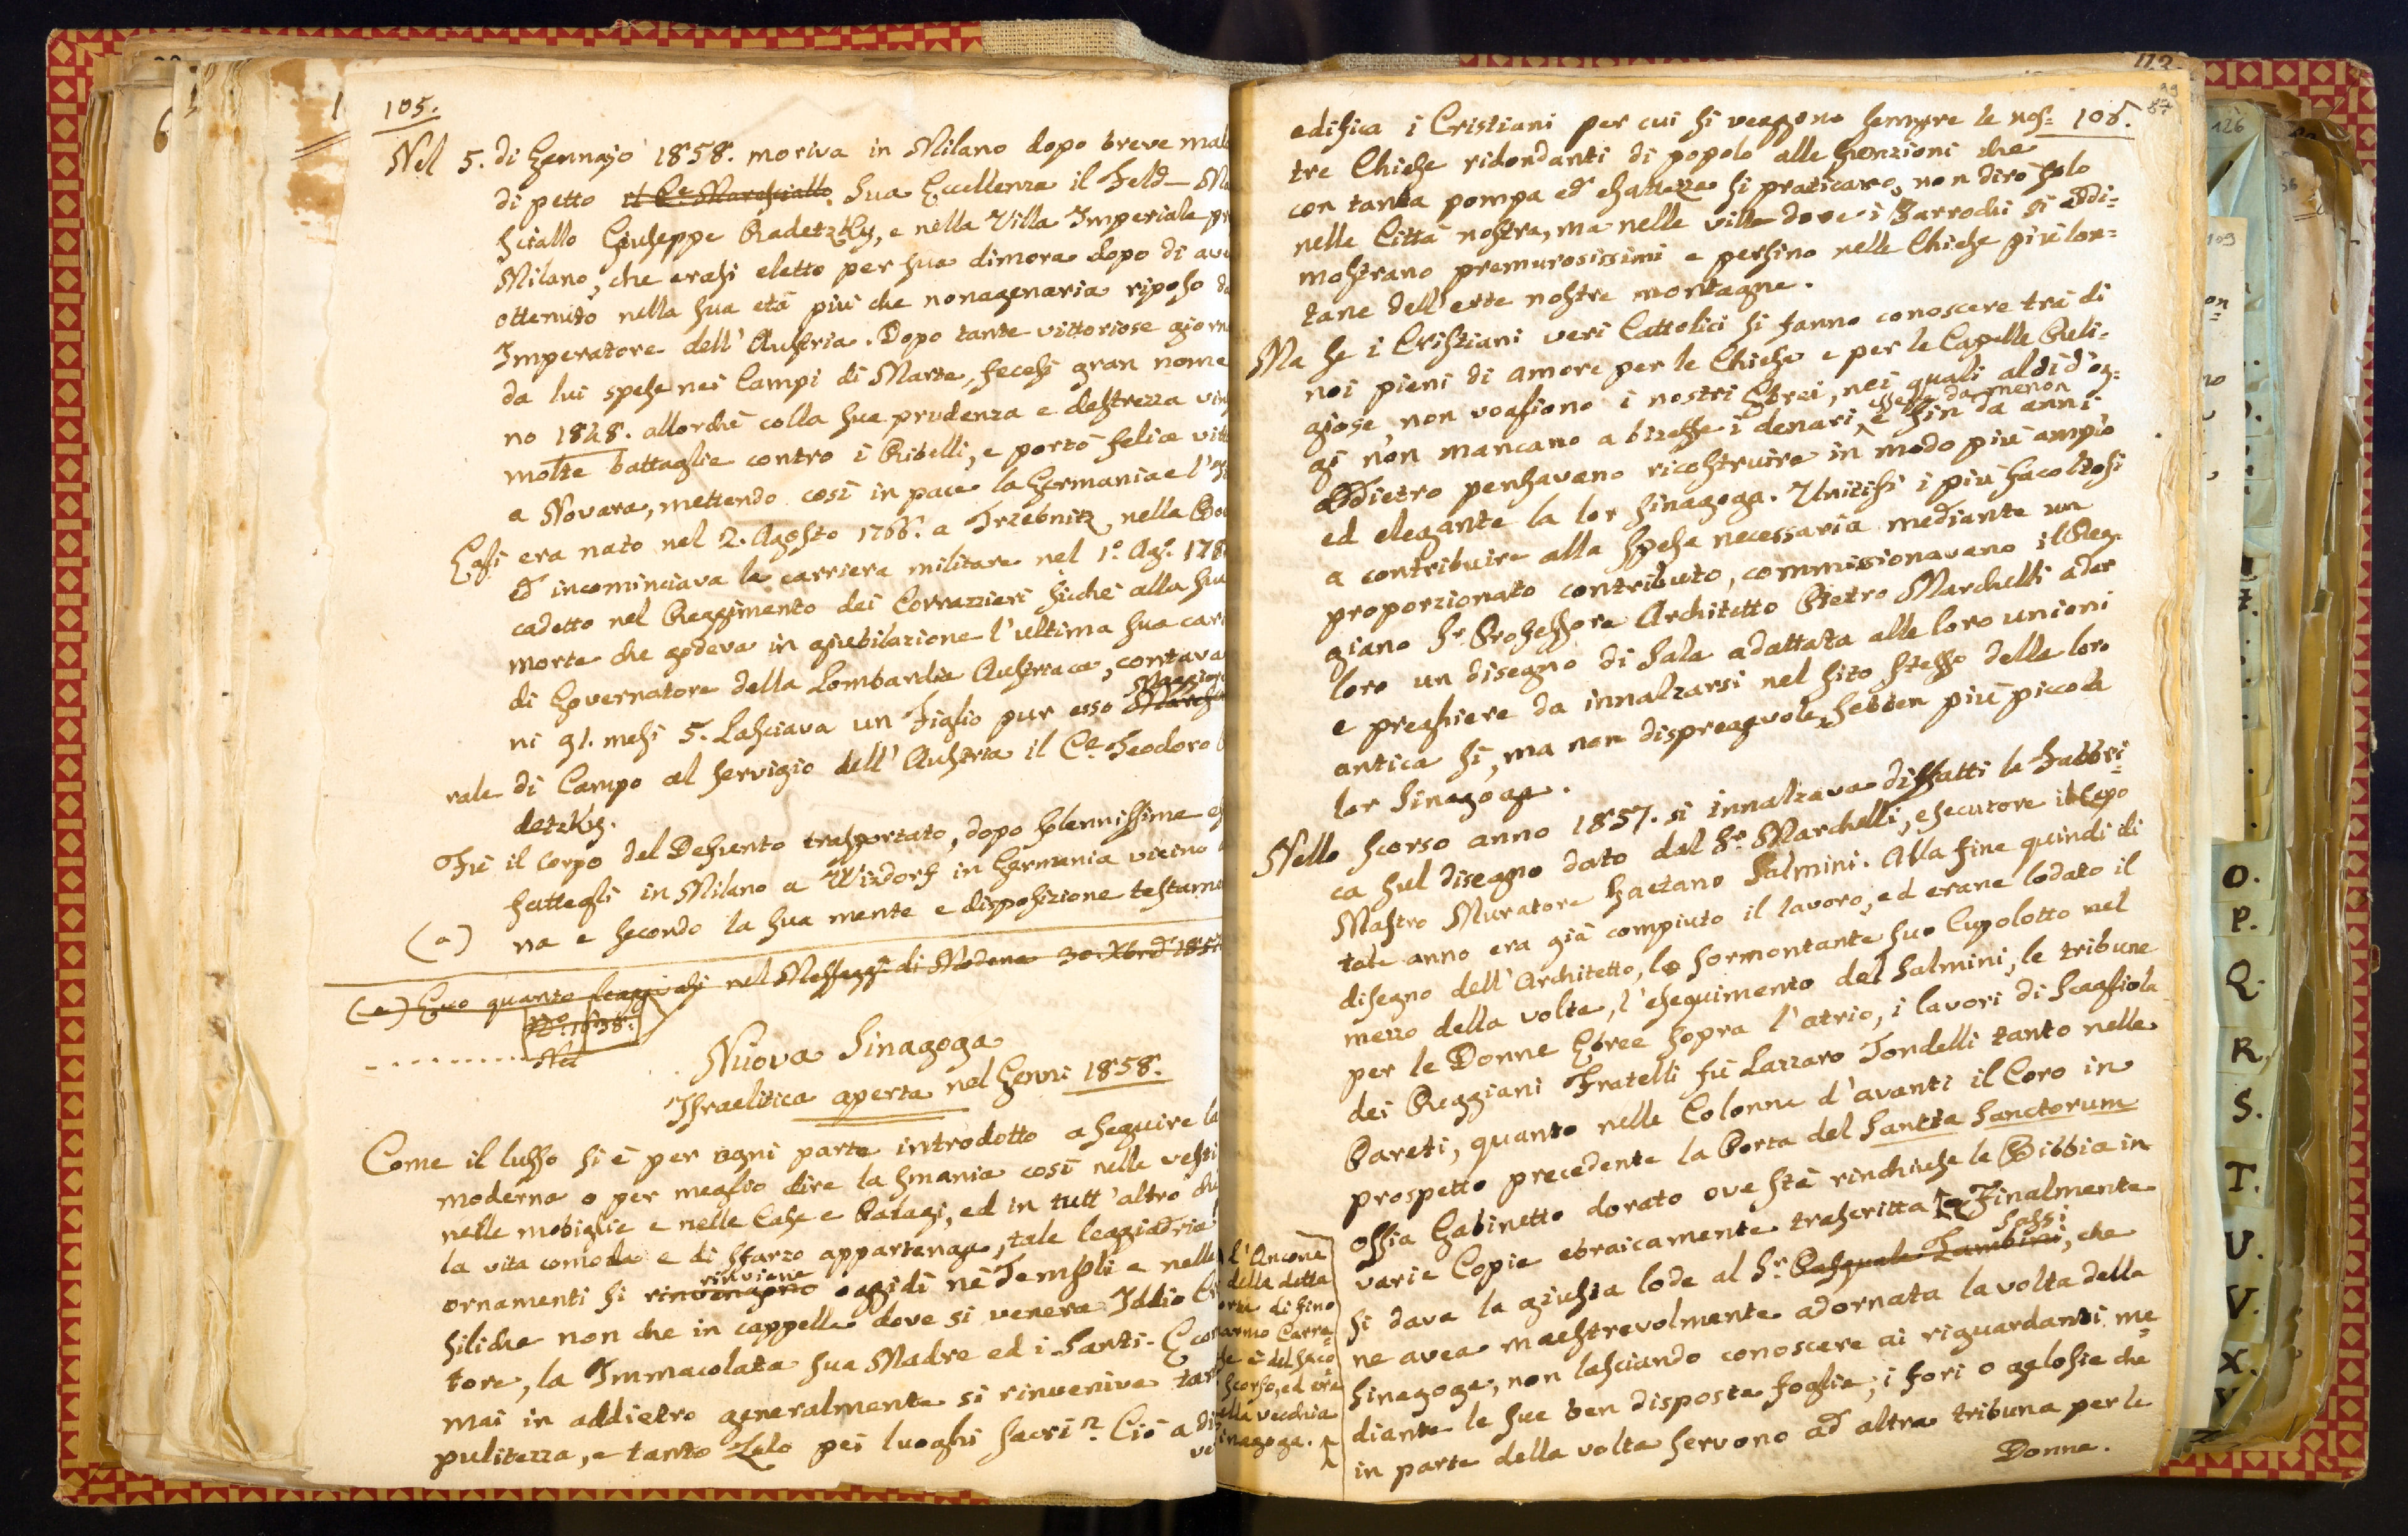 105.
Nel 5. di Gennajo 1858. moriva in Milano dopo breve mal
di petto il Ce. Maresciallo Sua Eccellenza il Feld-Ma
sciallo Giuseppe Radetzky, e nella Villa Imperiale pr
Milano, che erasi eletto per sua dimora dopo di ave
ottenuto nella sua età più che nonagenaria riposo da
Imperatore dell'Austria. Dopo tante vittoriose giorn
da lui spese nei Campi di Marte, fecesi gran nome
no 1848. allorchè colla sua prudenza e destrezza vin
molte battaglie contro i Ribelli, e portò felice vitt
a Novara, mettendo così in pace la Germania e l'
Egli era nato nel 2. Agosto 1766. a Trzebnitz, nella Bo
ed incominciava la carriera militare nel 1.º Agº. 178
cadetto nel Reggimento dei Corrazzieri sichè alla sua
morte che godeva in giubilazione l'ultima sua cari
di Governatore della Lombardia Austriaca, contava
ni 91. mesi 5. Lasciava un Figlio pur esso Maresc
Maggior
rale di Campo al servigio dell'Austria il Ce. Teodoro
detzky.
Fù il corpo del Defunto trasportato, dopo solennissime es
fattegli in Milano a Wizdorf in Germania vicino
(a) na e secondo la sua mente e disposizione testame
(a) Ecco quanto leggevasi nel Messagg. di Modena 30. Xbre 1857
Nº. 1638.
Nel
Nuova Sinagoga
Israelitica aperta nel Genni 1858.
Come il lusso si è per ogni parte introdotto a seguire la
moderna o per meglio dire la smania così nelle vesti
nelle mobiglie e nelle Case e Palagi, ed in tutt'altro che
la vita comoda e di sfarzo appartenga, tale leggiadria
ornamenti si rinvengono oggidì nè Templi e nelle
rinviene
siliche non che in cappelle dove si venera Iddio Cr
tore, la Immacolata sua Madre ed i Santi. E co
mai in addietro generalmente si rinveniva tan
pulitezza, e tanto Zelo pei luoghi sacri. Ciò a di
ve
112
99
87
106.
edifica i Cristiani per cui si veggono sempre le nos=
tre Chiese ridondanti di popolo alle funzioni che
con tanta pompa ed esattezza si praticano, non dirò solo
nelle Città nostra, ma nelle ville dove i Parrochi si addi=
mostrano premurosissimi e persino nelle Chiese più lon=
tane dell'erte nostre montagne.
Ma se i Cristiani veri Cattolici si fanno conoscere trà di
noi pieni di amore per le Chiese e per le Capelle Reli=
giose, non vogliono i nostri Ebrei, nei quali aldì d'og=
essere da menon
gi non mancano a bizeffe i denari, e sin da anni
addietro pensavano ricostruire in modo più ampio
ed elegante la lor sinagoga. Unitisi i più facoltosi
a contribuire alla spesa necessaria mediante un
proporzionato contributo, commissionavano il Reg=
giano Sr. Professore Architetto Pietro Marchelli a dar
loro un disegno di Sala adattata alle loro unioni
e preghiere da innalzarsi nel sito stesso della loro
antica sì, ma non dispregevole, sebben più piccola
lor Sinagoga.
Nello scorso anno 1857. si innalzava diffatti la Fabbri=
ca sul disegno dato dal Sr. Marchelli, esecutore il Capo
Mastro Muratore Gaetano Salmini. Alla fine quindi di
tale anno era già compiuto il lavoro, ed erane lodato il
disegno dell'Architetto, lo sormontante suo Cupolotto nel
mezzo della volta, l'eseguimento del Salmini, le tribune
per le Donne Ebree sopra l'atrio, i lavori di Scagliola
dei Reggiani Fratelli fù Lazzaro Tondelli tanto nelle
Pareti, quanto nelle Colonne d'avanti il Coro in
prospetto precedente la Porta del Santta Sanctorum
ossia Gabinetto dorato ove stà rinchiusa la Bibbia in
varie Copie ebraicamente trascritta. Finalmente
Sassi
si dava la giusta lode al Sr. Pasquale Zambini, che
ne avea maestrevolmente adornata la volta della
sinagoga, non lasciando conoscere ai riguardanti me=
diante le sue ben disposte foglie, i fori o gelosie che
in parte della volta servono ad altra tribuna per le
Donne.
l'Ancona
della detta
orta di fino
armo Carra=
se è del seco
scorso, ed era
ella vecchia
inagoga.
126
109
O.
P.
Q.
R.
S.
T.
U.
V.
X.